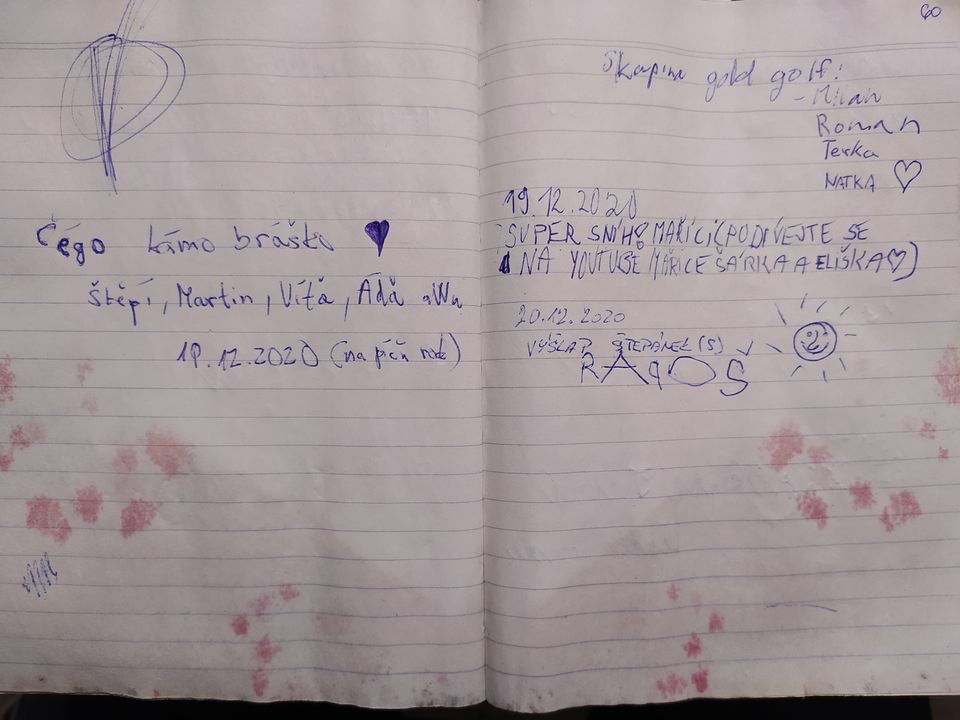 Čégo kámo bráško
Štěpí, Martin, Víťa, Áďa
19.12.2020 (na píču rok)
60
Skupina gold golf:
- Milan
Roman
Terka
NATKA
19.12.2020
SUPER SNÍH! MAŘÍCI (PODÍVEJTE SE
NA YOUTUBE MAŘICE ŠÁRKA A ELIŠKA)
20.12.2020
VÝŠLAP ŠTĚPÁNEK (S)
RAgOS